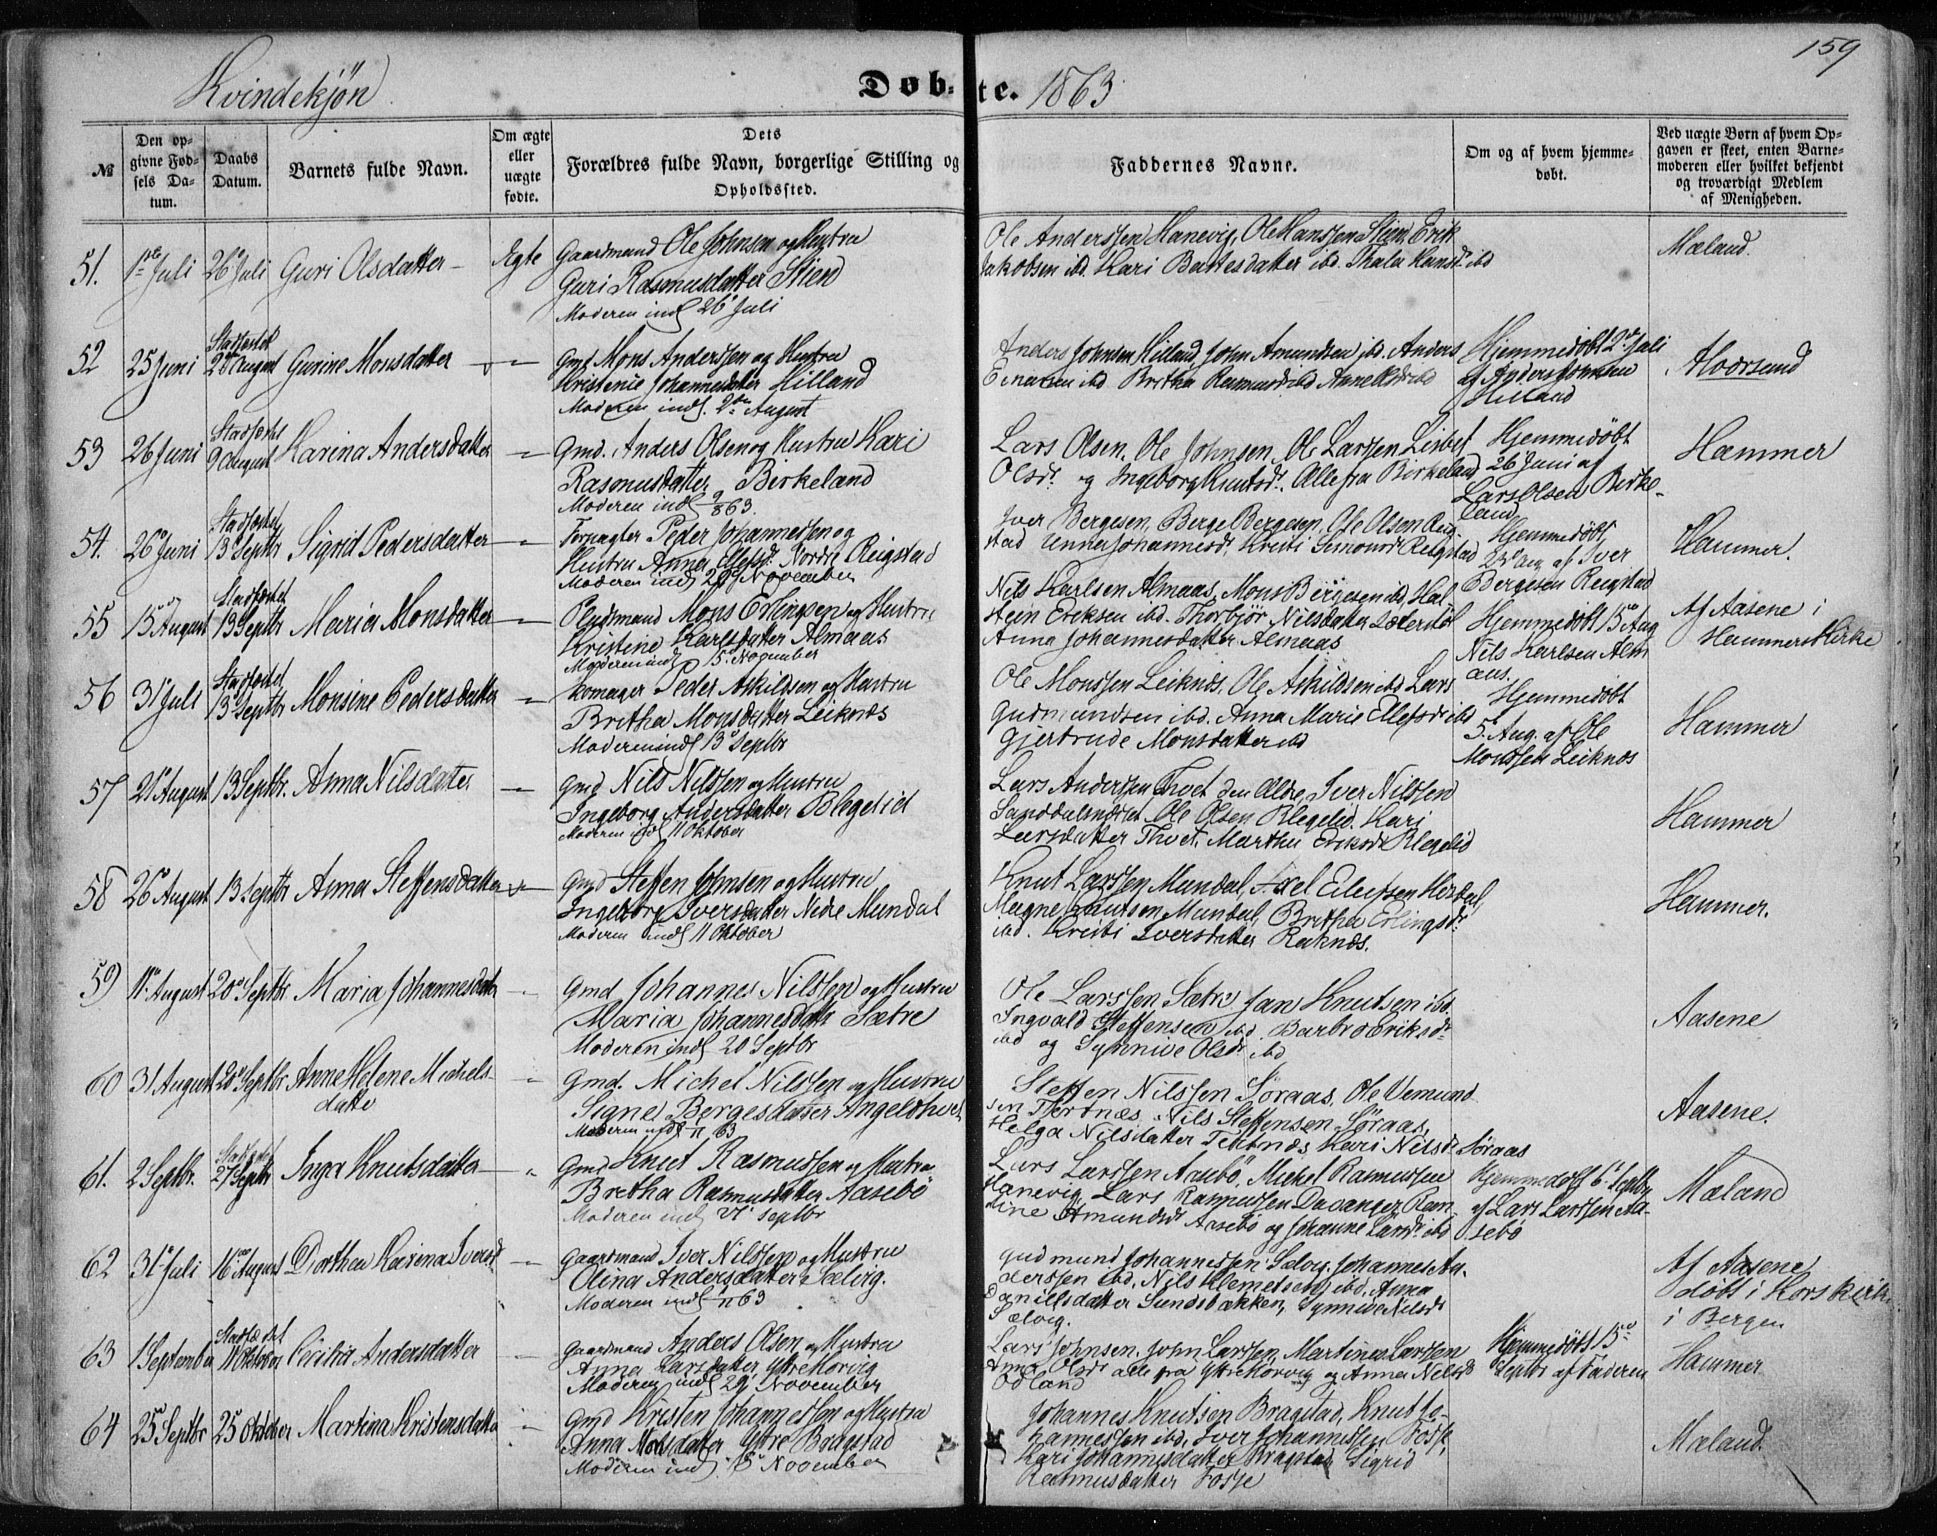 159
Kvindekjön
Døbte. 1863
№
Den opgivne Fødsels Datum.
Daabs Datum.
Barnets fulde Navn.
Om ægte eller uægte fødte.
Dets Forældres fulde Navn, borgerlige Stilling og Opholdssted.
Faddernes Navne.
Om og af hvem hjemmedøbt.
Ved uægte Børn af hvem Opgaven er skeet, enten Barnemoderen eller hvilket bekjendt og troværdigt Medlem af Menigheden.
51. 1ste Juli 26 Juli Guri Olsdatter Ægte
Gaardmand Ole Johnsen og Hustru
Guri Rasmusdatter Stien
Moderen indl 26 Juli
Ole Anderssen Hanevig, Ole Hanssen Stien, Erik
Jakobsen ibd. Kari ibd. ibd
Mæland.
52 25 Juni Stadfæstet 2 August Gunine Monsdatter
Gmd Mons Anderssen og Hustru
Kristenie Johannesdatter Hilland
Moderen indl. 2den August
Anders Johnsen Hilland, John Amundsen ibd. Anders
ibd Britha ibd
Hjemmedøbt 2 Juli
af Anders Johnsen
Hilland
Alværsund
53 26 Juni Stadfæstet 9 August Karina Andersdatter
Gmd. Anders Olsen og Hustru Kari
Rasmusdatter Birkeland
Moderen indl 9/8 63.
Lars Olsen, Ole Johnsen, Ole Larssen Lisbet
Olsdr. og Ingeborg Knutsdr. Alle fra Birkeland
Hjemmedøbt
26 Juni af
Lars Olsen Birke-
land
Hammer
54. 26 Juni Stadfæstet 13 Septbr Sigrid Pedersdatter
Forpagter Peder Johannessen og
Hustru Anna Nordre Reigstad
Moderen indl 29 November
Iver Bergesen, Berge Bergesen, Ole Olsen Reig-
stad Johannesdr. Kristi Simonsdr Reigstad
Hjemmedøbt
af Iver
Bergesen Reigstad
Hammer.
55 15 August Stadfæstet 13 Septbr Maria Monsdatter
Mons Erlingsen og Hustru
Kristine Karlsdatter Almaas
Moderen indl 15 November
Nils Karlsen Almaas, Mons Birgesen ibd, Hal-
stein Eriksen ibd. Thorbjør Nilsdatter
Anna Johannesdatter Almaas
Hjemmedøbt 15 Aug
Nils Karlsen Alm
aas.
Af Aasene i
Hammers Kirke
56 31 Juli Stadfæstet 13 Septbr Monsine Pedersdatter
Peder Askildsen og Hustru
Britha Monsdatter Leiknes
Moderen indl 13 Septbr
Ole Monssen Leiknes, Ole Askildsen ibd Lars
Gudmundsen ibd. Anna Marie Ellefsdr ibd
Gjertrude Monsdatter ibd
Hjemmedøbt
5. Aug. af Ole
Monssen Leiknes
Hammer
57 21 August 13 Septbr. Anna Nilsdatter
Gmd Nils Nilssen og Hustru
Ingeborg Andersdatter Blegelid
Moderen indl 11 Oktober
Lars Anderssen Thvet den Aldre, Iver Nilssen
Ole Olsen Blegelid. Kari
Larsdatter Thvet. Martha Eriksdr Blegelid
Hammer
58 26 August 13 Septbr Anna Steffensdatter
Gmd Steffen Johnsen og Hustru
Ingeborg Iversdatter Nedre Mundal
Moderen indl 11 Oktober
Knut Larssen Mundal, Axel Herdal,
Magne Knutsen Mundal, Britha Erlingsdr.
ibd. Kristi Iversdatter Raknes.
Hammer.
59 11 August 20 Septbr. Maria Johannesdatter
Gmd Johannes Nilssen og Hustru
Maria Johannesdatter Sætre
Moderen indl 20 Septbr
Ole Larssen Sætre Jan Knutsen ibd.
Ingvald Steffensen ibd Barbro Eriksdr
ibd og Synnive Olsdr ibd
Aasene
60 31 August 20 Septbr Anne Helene Michels-
datter
Gmd. Michel Nilssen og Hustru
Signe Bergesdatter
Moderen indl 63
Steffen Nilssen Søraas, Ole Vemund-
sen Tertnes, Nils Steffensen Søraas,
Helga Nilsdatter Tertnes, Kari Nilsdr Søraas
Aasene.
61. 2 Septbr. 27 Septbr Inga Knutsdatter
Gmd Knut Rasmussen og Hustru
Bretha Rasmusdatter Aasebö
Moderen indl 27 Septbr
Lars Larssen Aasebö, Michel Rasmussen
Hanevig, Lars Rasmussen Davanger,
Amundsdr Aasebö og Johanne Larsdr. ibd
Hjemmedøbt 6 Septbr
af Lars Larssen Aa-
sebö
Mæland
62 31 Juli 16 August Dorthea Karina Iversdr
Gaardmand Iver Nilssen og Hustru
Olina Andersdatter Sælvig.
Moderen indl 63
Gudmund Johannessen Sælvig, Johannes An-
derssen ibd, Nils Klemetsen ibd, Anna
Danielsdatter Synniva Nilsdr
Sælvig.
Af Aasene
døbt i Korskirk.
i Bergen
63 1 September Stadfæstet 11 Oktober Cecilia Andersdatter
Gaardmand Anders Olsen og Hustru
Anna Larsdatter Ytre Morvig
Moderen indl 29 November
Lars Johnsen. John Larssen, Martines Larssen
Anna Olsdr alle fra Ytre Morvig og Anna Nilsdr
Odland
Hjemmedøbt 15
Septbr af Faderen
Hammer
64 25 Septbr 25 Oktober Martina Kristensdatter
Gmd Kristen Johannessen og Hustru
Anna Monsdatter Ytre Bragstad
Moderen indl. November
Johannes Knutsen Bragstad, Knut Jo-
hannessen ibd, Iver Johannessen Fosse,
Kari Johannesdatter Bragstad Sigrid
Rasmusdatter Fosse
Mæland.